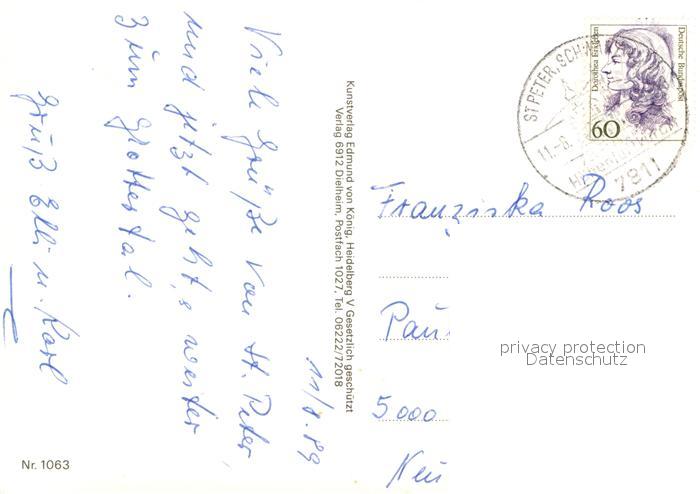 11/8.89
Viele Grüße von St. Peter,
und jetzt geht's weiter
zum Glottertal.
Gruß Elli u. Karl
Nr. 1063
Kunstverlag Edmund von König, Heidelberg V Gesetzlich geschützt
Verlag 6912 Dielheim, Postfach 1027, Tel. 06222/72018
Deutsche Bundespost
Dorothea Erxleben
60
ST. PETER, SCHWARZW
11.-8.
7811
Franziska Roos
Pau
5000
privacy protection
Datenschutz